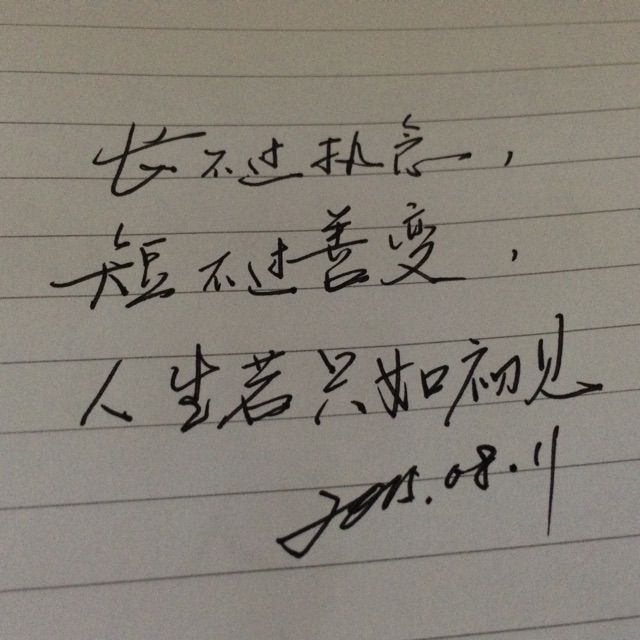 长不过执念，
短不过善变，
人生若只如初见
2015.08.11